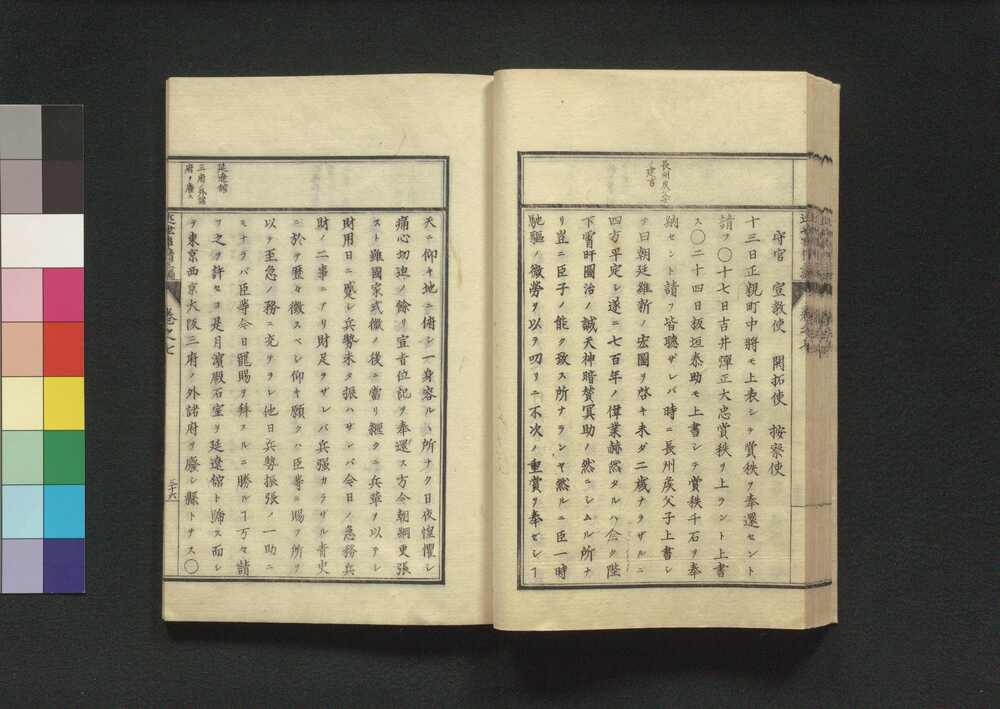 長州侯父子
ノ建言
守官　宣教使　開拓使　按察使
十三日正親町中將モ上表シテ賞秩ヲ奉還セント
請フ〇十七日吉井彈正大忠賞秩ヲ上ラント上書
ス〇二十四日板垣泰助モ上書シテ賞秩千石ヲ奉
納セント請フ皆聽サレバ時ニ長州侯父子上書シ
テ曰朝廷維新ノ宏圖ヲ啓キ未ダ二歳ナラザルニ
四方平定シ遂ニ七百年ノ偉業赫然タルハ陛
下宵旰圖治ノ誠天神暗賛冥助ノ然ラシムル所ナ
リ豈ニ臣子ノ能ク致ス所ナランヤ然ルニ臣一時
馳驅ノ微勞ヲ以テ叨リニ不次ノ重賞ヲ奉ゼシヿ
延遼館
三府ノ外諸
府ヲ廢ス
天ニ仰キ地ニ俯シ一身容ルヽ所ナク日夜惶懼シ
痛心切迫ノ餘リ宣旨位記ヲ奉還ス方今朝綱更張
スト雖國家式微ノ後ニ當リ繼クニ兵革ヲ以テシ
財用日ニ蹙シ兵勢未タ振ハザレバ今日ノ急務兵
財ノ二事ニアリ財足ラザレバ兵强カラザル青史
ニ於テ歷々徴スベシ仰キ願クハ臣等ニ賜フ所ヲ
以テ至急ノ務ニ充ラレ他日兵勢振張ノ一助ニ
モナラバ臣等今日寵賜ヲ拜スルニ勝ルヿ万々請
フ之ヲ許セヨ是月濱殿石室ヲ延遼館ト歸ス而シ
テ東京西京大阪三府ノ外諸府ヲ廢シ縣トサス〇
卷之七
三十六